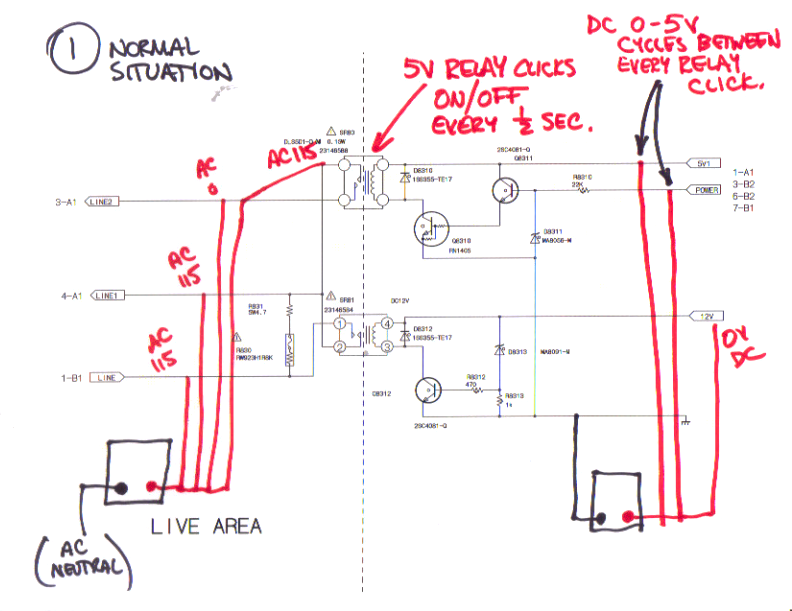 1 NORMAL
SITUATION
5V RELAY CLICKS
ON/OFF
EVERY 1/2 SEC.
DC 0-5V
CYCLES BETWEEN
EVERY RELAY
CLICK.
SR83
0.18W
23148588
AC115
AC
0
D8310
1SS355-TE17
2SC4081-Q
Q8311
R8310
22K
5V1
POWER
1-A1
3-B2
6-B2
7-B1
3-A1 LINE2
Q8310
RN1405
D8311
AC
115
4-A1 LINE1
R831
5W4.7
SR81
23148584
DC12V
12V
1
4
2
3
D8312
1SS355-TE17
D8313
AC
115
R830
1-B1 LINE
R8312
470
R8313
1K
Q8312
2SC4081-Q
0V
DC
LIVE AREA
(AC
NEUTRAL)